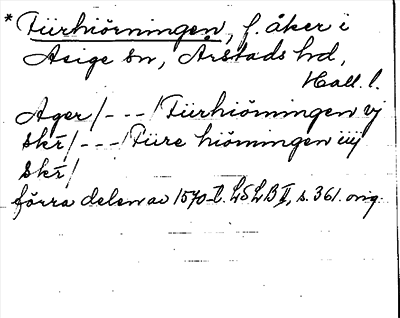 * Tiirhiörningen, f. åker i
Asige sn, Årstads hd,
Hall. l.
Ager/---/Tiirhiörningen vj
skr̄/---/Tiire hiörningen iiij
skr̄/
förra delen av 1570-t. LSLB II, s. 361. orig.